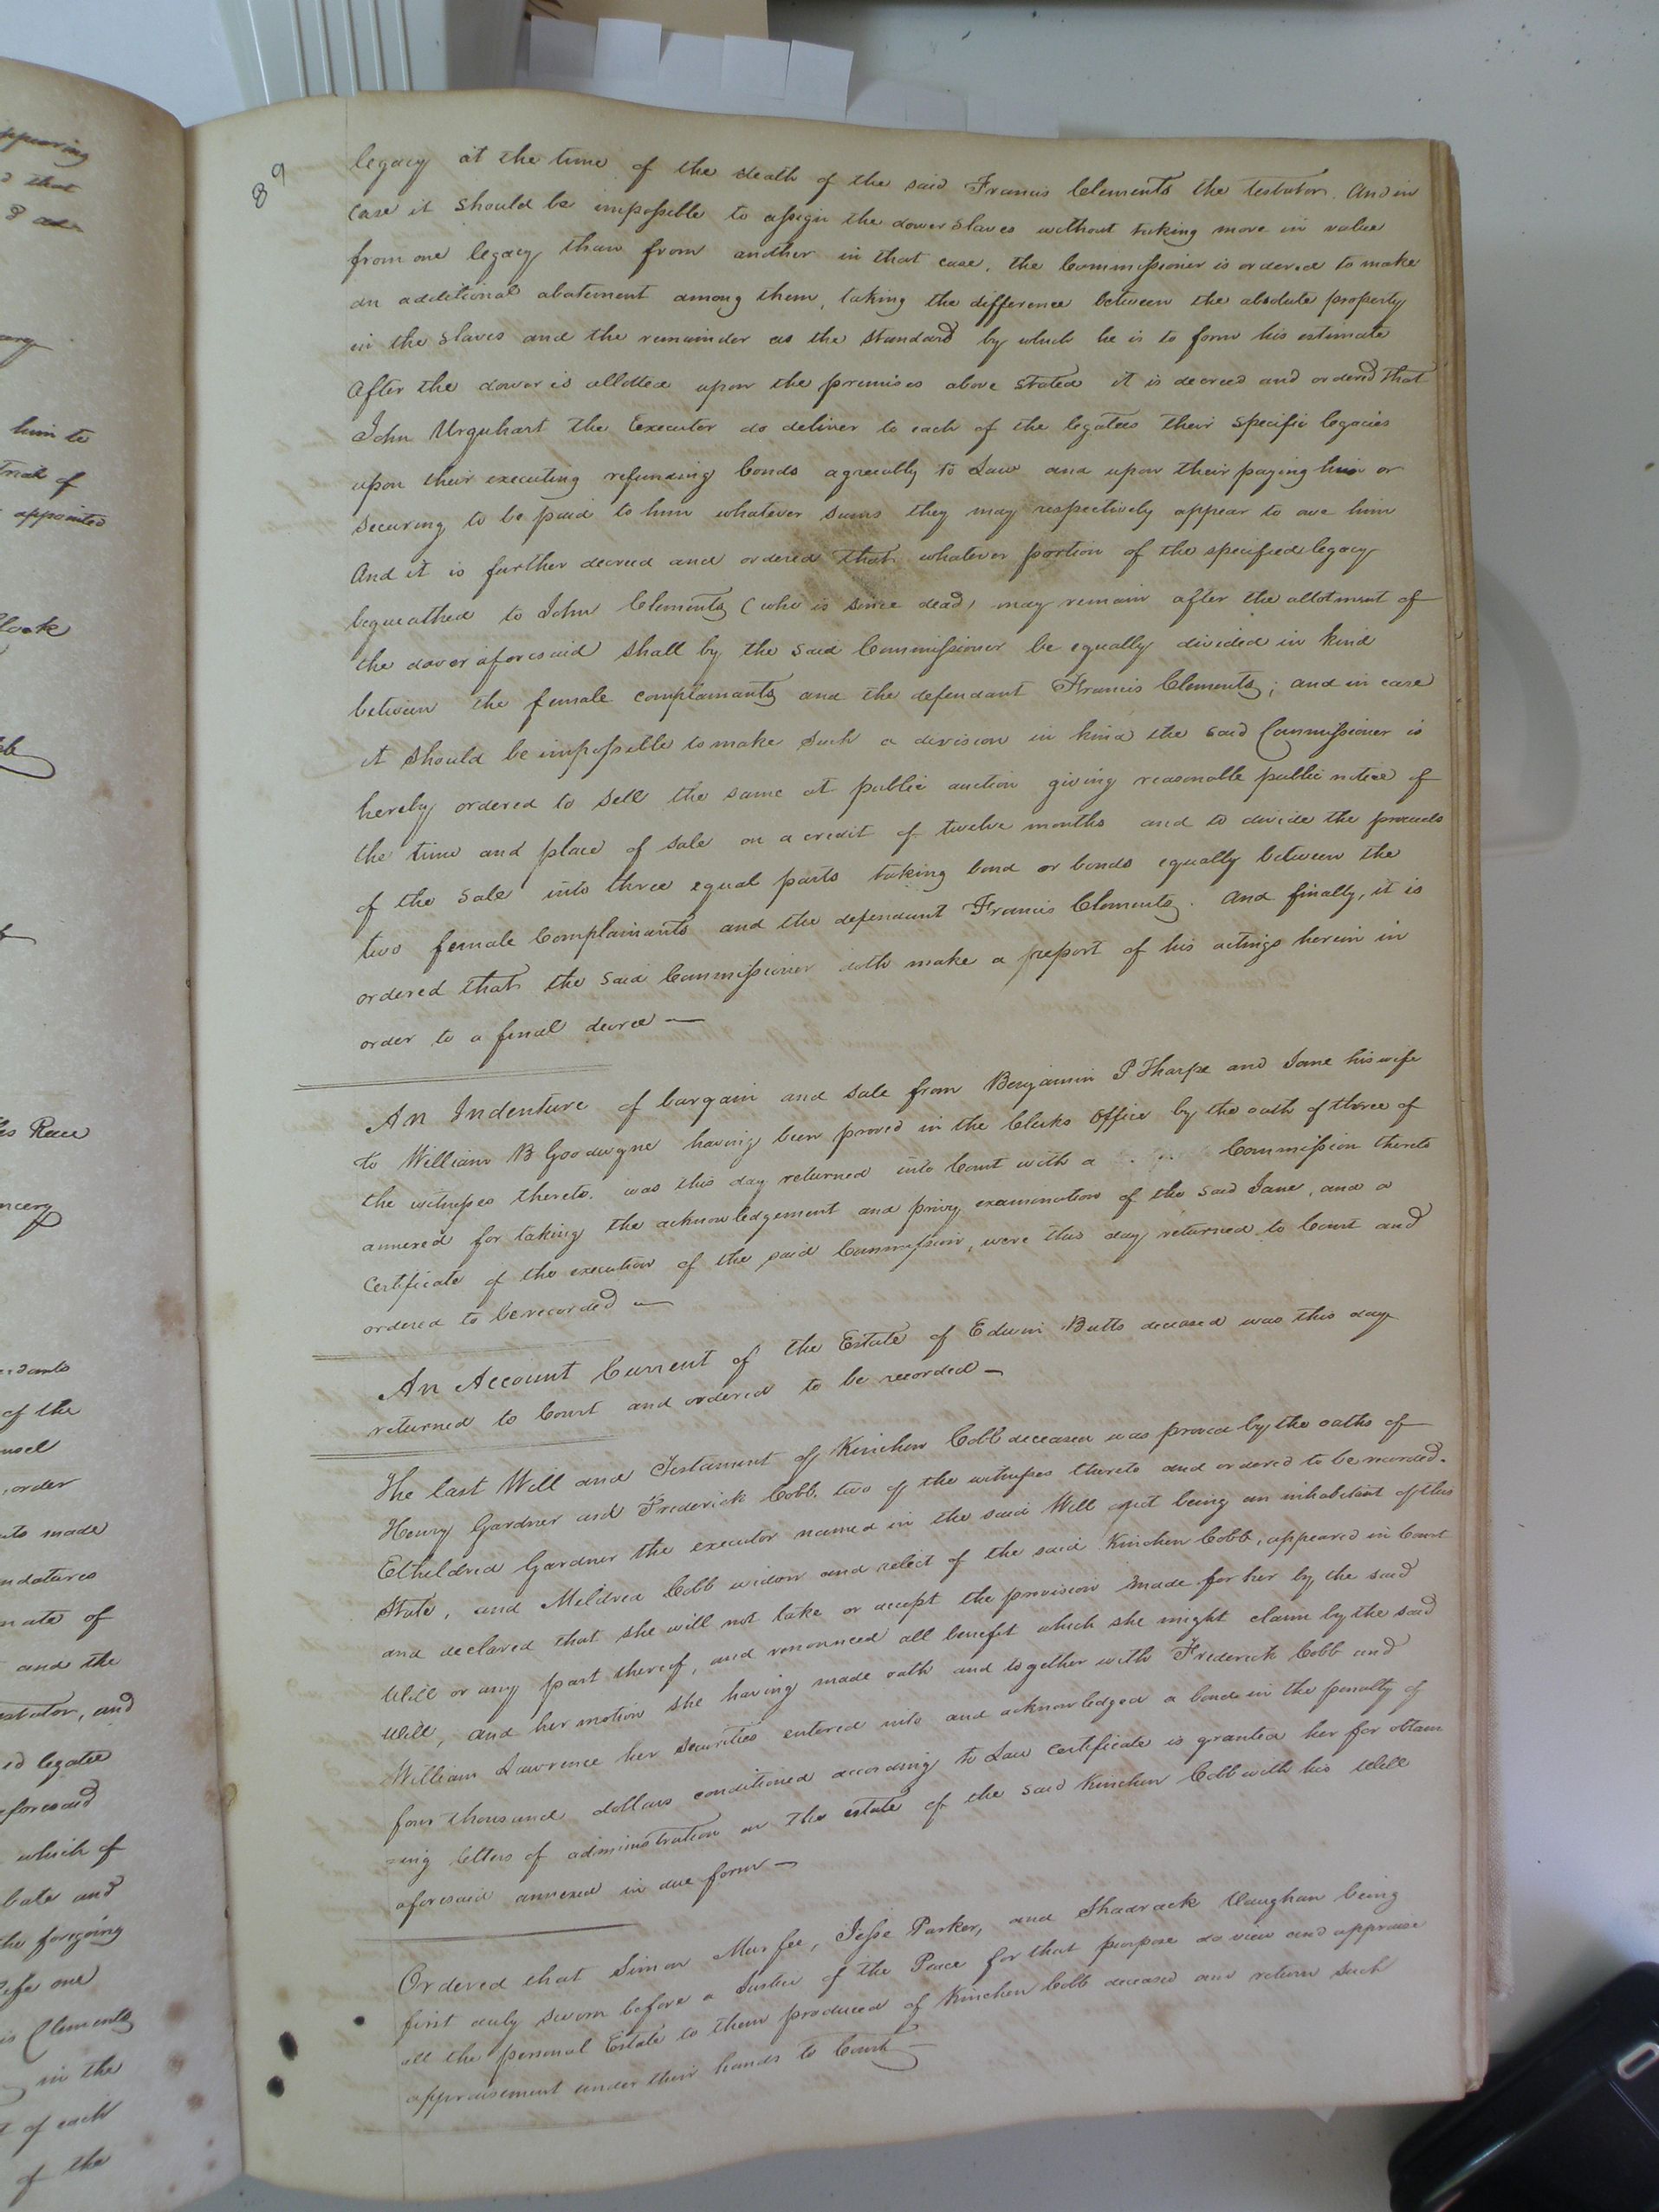 89
legacy at the time of the death of the said Francis Clements the testator. And in
Case it should be impossible to assign the dower slaves without taking more in value
from one legacy than from another in that case, the Commissioner is ordered to make
an additional abatement among them, taking the difference between the absolute property
in the slaves and the remainder as the standard by which he is to form his estimate
After the dower is allotted upon the premises above stated it is decreed and ordered that
John Urquhart the Executor do deliver to each of the legatees their specific legacies
upon their executing refunding bonds agreeably to Law and upon their paying him or
securing to be paid to him whatever sums they may respectively appear to owe him
And it is further decreed and ordered that whatever portion of the specified legacy
bequeathed to John Clements (who is since dead) may remain after the allotment of
the dower aforesaid shall by the said Commissioner be equally divided in kind
between the female complainants and the defendant Francis Clements; and in case
it should be impossible to make such a devision in kind the said Commissioner is
hereby ordered to sell the same at public auction giving reasonable public notice of
the time and place of sale on a credit of twelve months and to divide the proceeds
of the sale into three equal parts taking bond or bonds equally between the
two female Complainants and the defendant Francis Clements. And finally, it is
ordered that the said Commissioner doth make a report of his actings herein in
order to a final decree —
An Indenture of bargain and sale from Benjamin P Tharpe and Jane his wife
to William B Goodwyne having been proved in the Clerks Office by the oath of three of
the witnesses thereto. was this day returned into Court with a Commission thereto
annexed for taking the acknowledgement and privy examination of the said Jane, and a
Certificate of the execution of the said Commission, were this day returned to Court and
ordered to be recorded —
An Account Current of the Estate of Edwin Butts deceased was this day
returned to Court and ordered to be recorded —
The last Will and Testament of Kinchen Cobb deceased was proved by the oaths of
Henry Gardner and Frederick Cobb two of the witnesses thereto and ordered to be recorded.
Etheldred Gardner the executor named in the said Will not being an inhabitant of this
State, and Mildred Cobb widow and relict of the said Kinchen Cobb, appeared in Court
and declared that she will not take or accept the provision made for her by the said
Will or any part thereof, and renounced all benefit which she might claim by the said
Will, and her motion she having made oath and together with Frederick Cobb and
William Lawrence her securities entered into and acknowledged a bond in the penalty of
four thousand dollars conditioned according to Law Certificate is granted her for obtain
=ing letters of administration on the estate of the said Kinchen Cobb with his Will
aforesaid annexed in due form —
Ordered that Simon Murfee, Jesse Parker, and Shadrack Vaughan being
first duly sworn before a Justice of the Peace for that purpose do view and appraise
all the personal Estate to them produced of Kinchen Cobb deceased and return such
appraisement under their hands to Court —